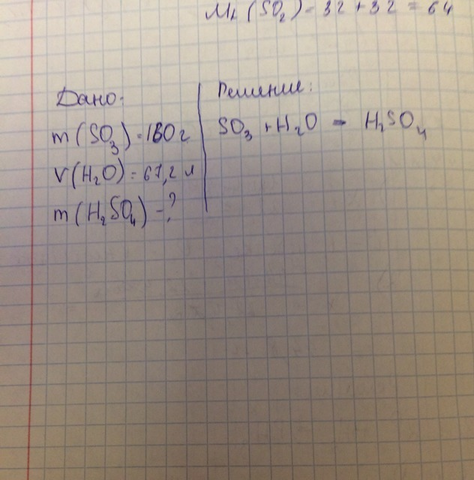 Mr (SO₂) = 32 + 32 = 64
Дано:
m (SO₃) = 160 г
V (H₂O) = 67,2 л
m (H₂SO₄) - ?
Решение:
SO₃ + H₂O = H₂SO₄